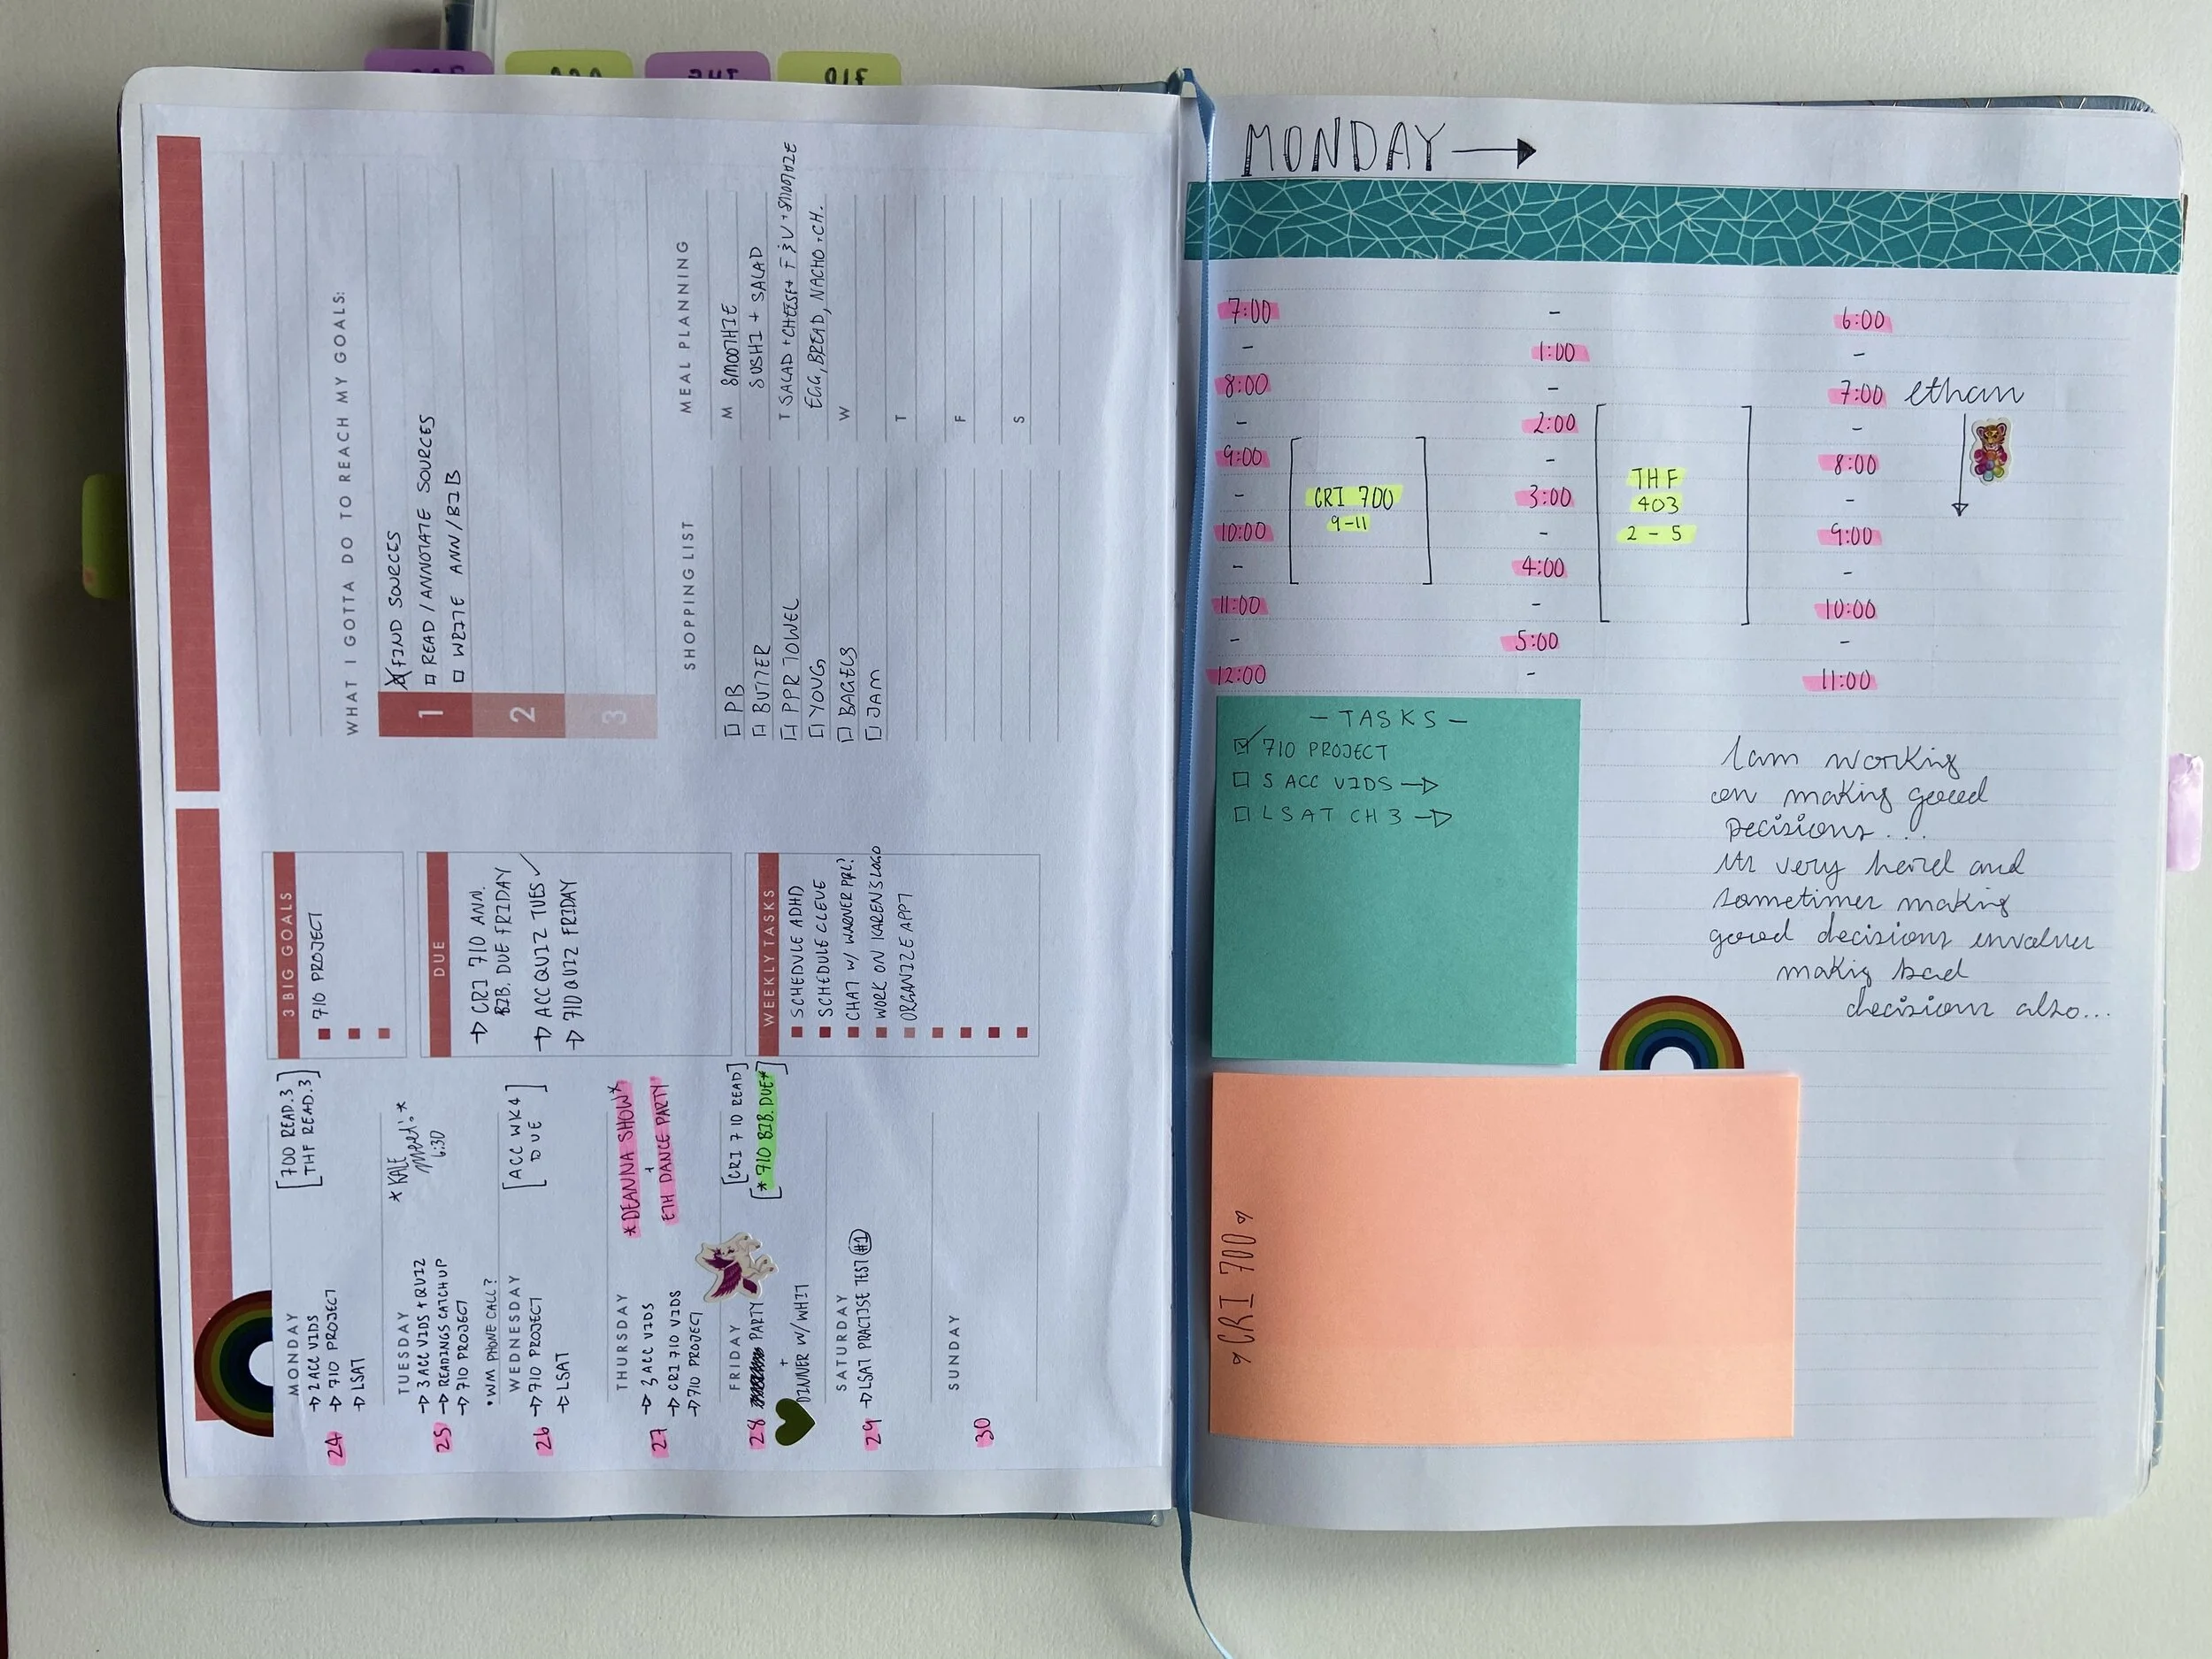 3 BIG GOALS
710 PROJECT
DUE
→ CRI 710 ANN.
BIB. DUE FRIDAY
→ ACC QUIZ TUES ✓
→ 710 QUIZ FRIDAY
WEEKLY TASKS
SCHEDULE ADHD
SCHEDULE CLEVE
CHAT W/ WARNER PPL?
WORK ON KARENS LOGO
ORGANIZE APPT
WHAT I GOTTA DO TO REACH MY GOALS:
1
FIND SOURCES
READ / ANNOTATE SOURCES
WRITE ANN/BIB
2
3
SHOPPING LIST
PB
BUTTER
PPR TOWEL
YOUG
BAGELS
JAM
MEAL PLANNING
M SMOOTHIE
SUSHI + SALAD
T SALAD + CHEESE + F & V + SMOOTHIE
EGG, BREAD, NACHO + CH.
W
T
F
S
MONDAY
24
→ 2 ACC VIDS
→ 710 PROJECT
→ LSAT
[700 READ. 3]
[THF READ. 3]
TUESDAY
25
→ 3 ACC VIDS + QUIZ
→ READINGS CATCHUP
→ 710 PROJECT
• WM PHONE CALL?
*KALE
6:30
WEDNESDAY
26
→ 710 PROJECT
→ LSAT
[ACC WK4
DUE]
THURSDAY
27
→ 3 ACC VIDS
→ CRI 710 VIDS
→ 710 PROJECT
*DEANNA SHOW*
+
ETH DANCE PARTY
FRIDAY
28
PARTY
+
DINNER W/ WHIT
[CRI 710 READ]
[*710 BIB. DUE*]
SATURDAY
29
→ LSAT PRACTISE TEST #1
SUNDAY
30
MONDAY →
7:00
-
8:00
-
9:00
-
10:00
-
11:00
-
12:00
CRI 700
9-11
-
1:00
-
2:00
-
3:00
-
4:00
-
5:00
-
THF
403
2 - 5
6:00
-
7:00 ethan
-
8:00
-
9:00
-
10:00
-
11:00
- TASKS -
710 PROJECT
5 ACC VIDS →
LSAT CH 3 →
I am working
on making good
decisions...
its very hard and
sometimes making
good decisions involves
making bad
decisions also...
CRI 700